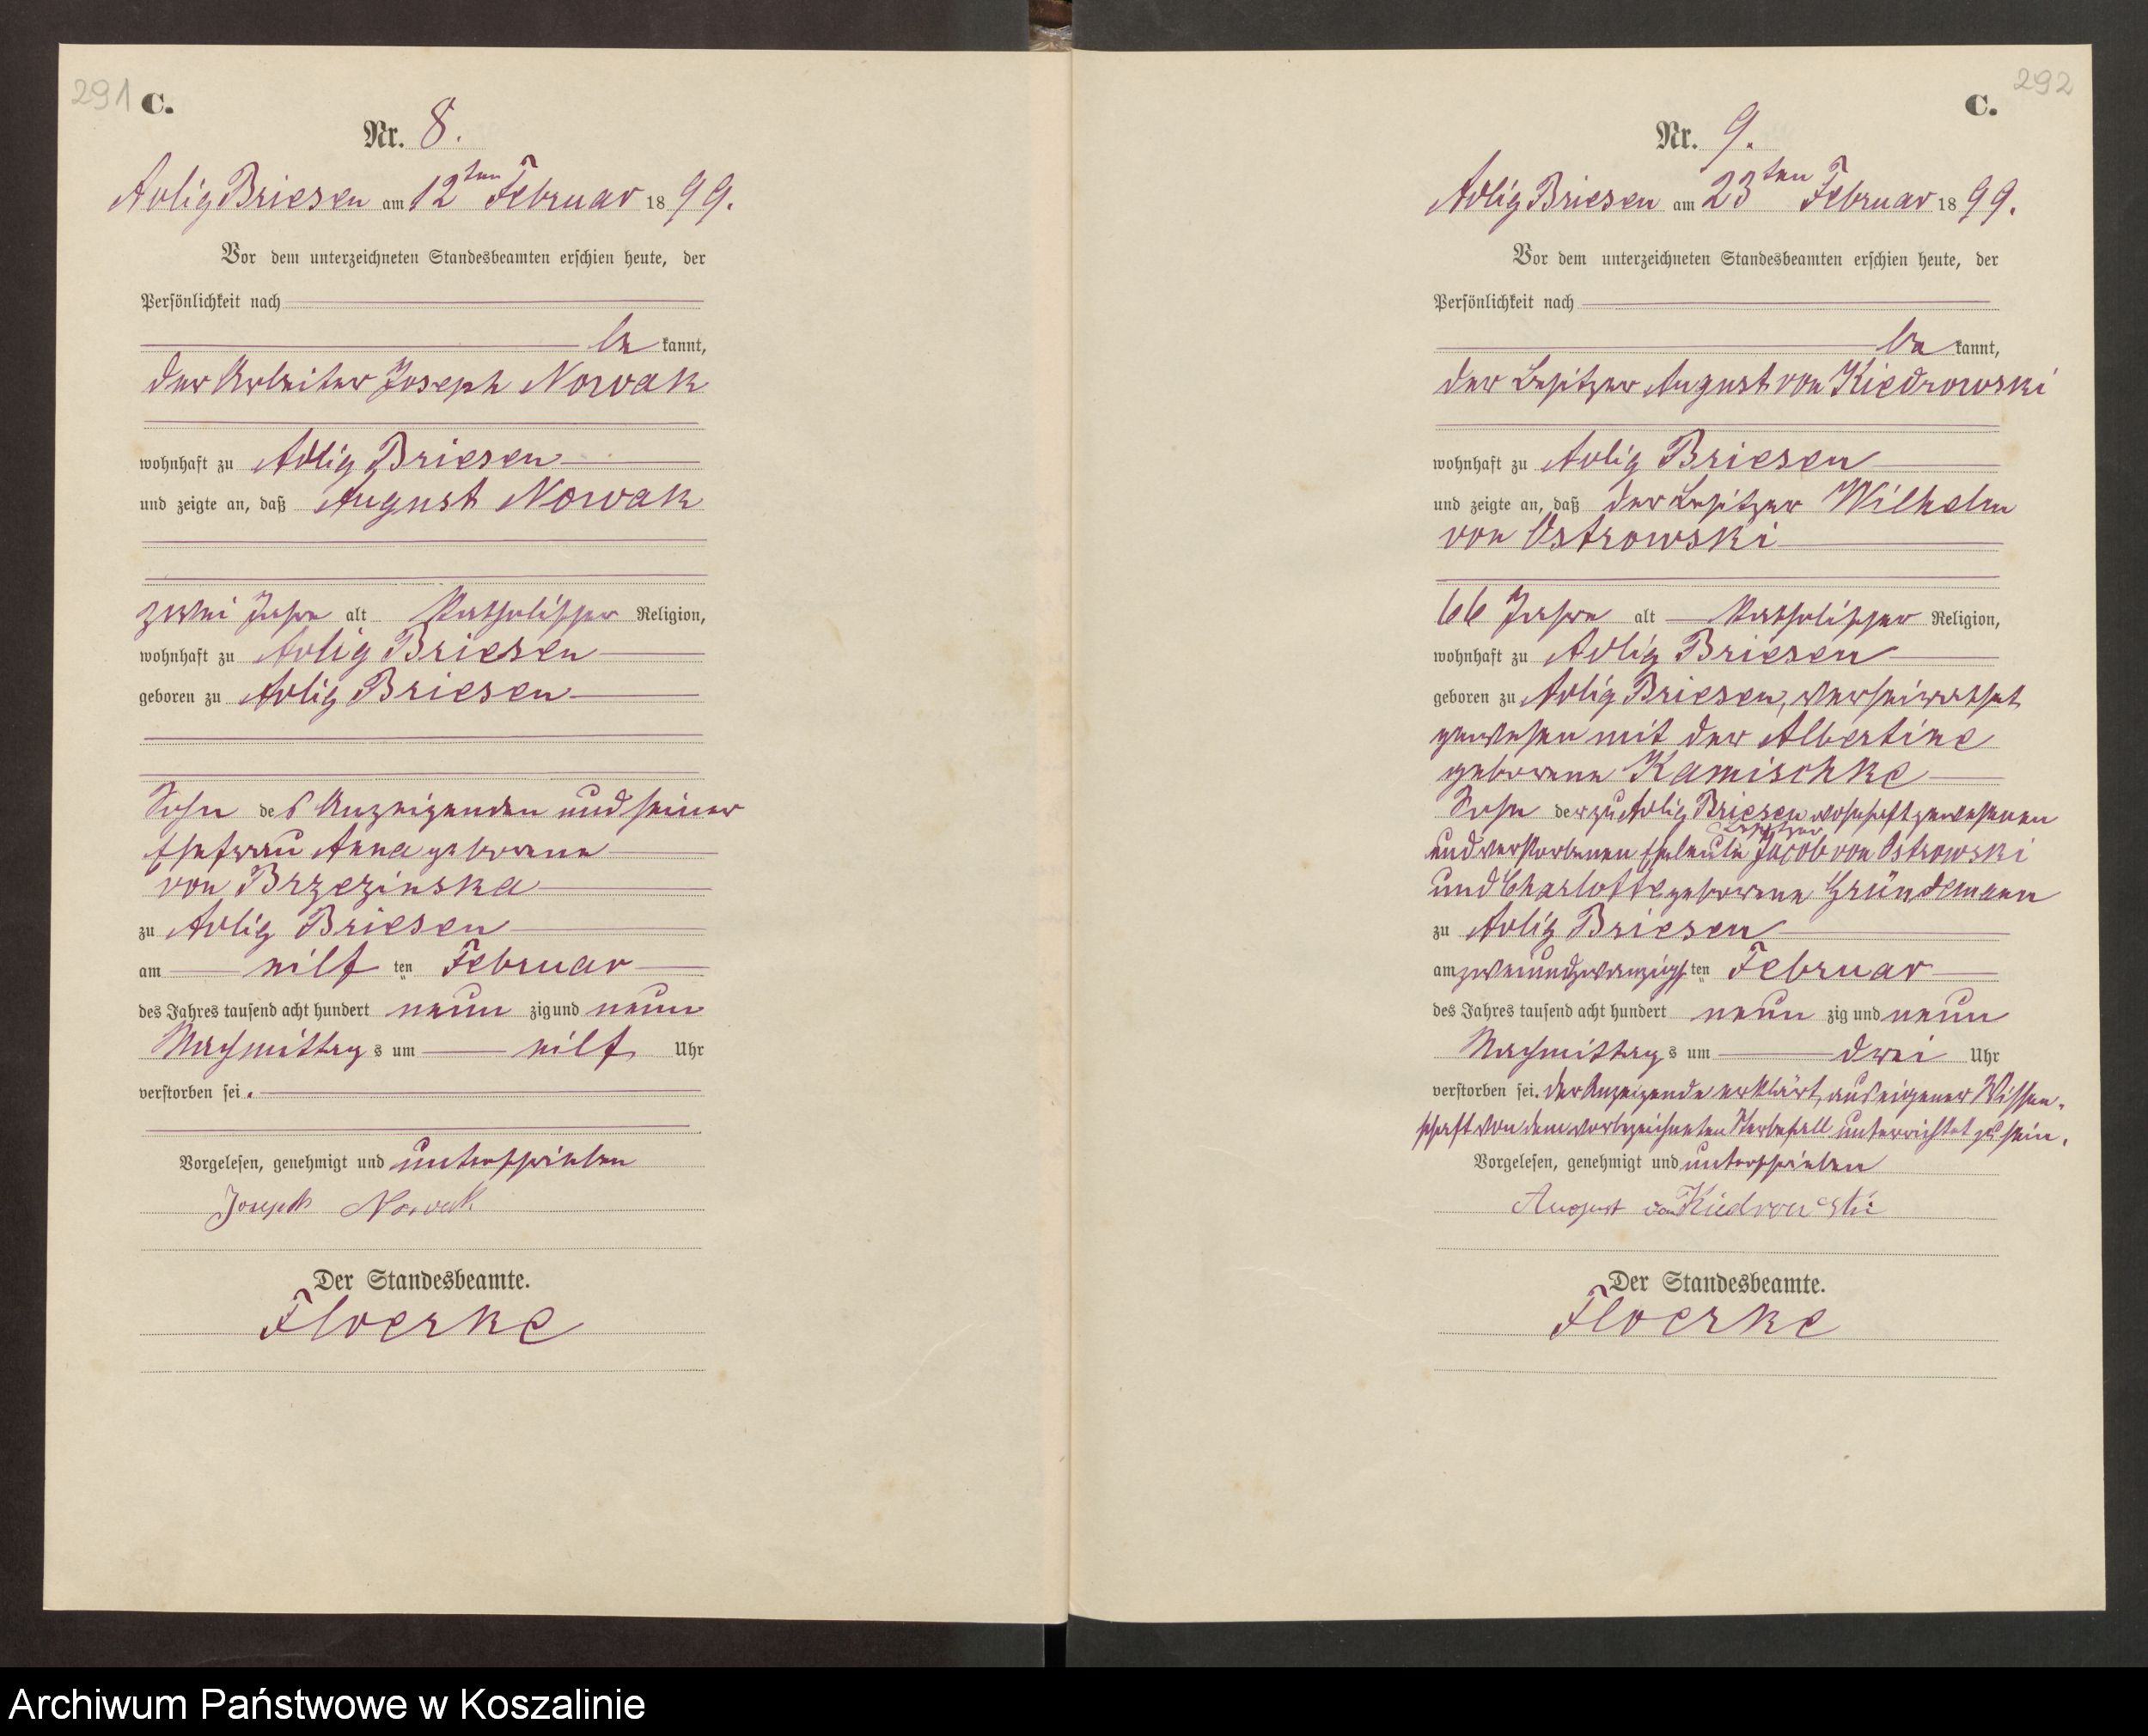 291
C.
Nr. 8.
Adlig Briesen am 12ten Februar 1899.
Vor dem unterzeichneten Standesbeamten erschien heute, der
Persönlichkeit nach
be kannt,
der Arbeiter Joseph Nowak
wohnhaft zu Adlig Briesen
und zeigte an, daß August Nowak
zwei Jahre alt Katholischer Religion,
wohnhaft zu Adlig Briesen
geboren zu Adlig Briesen
Sohn des Anzeigenden und seiner
Ehefrau Anna geborene
von Brzezinska
zu Adlig Briesen
am eilf ten Februar
des Jahres tausend acht hundert neun zig und neun
Nachmittags um eilf Uhr
verstorben sei.
Vorgelesen, genehmigt und unterschrieben
Joseph Nowak
Der Standesbeamte.
Floerke
292
C.
Nr. 9.
Adlig Briesen am 23ten Februar 1899.
Vor dem unterzeichneten Standesbeamten erschien heute, der
Persönlichkeit nach
be kannt,
der Besitzer August von Kiedrowski
wohnhaft zu Adlig Briesen
und zeigte an, daß der Besitzer Wilhelm
von Ostrowski
66 Jahre alt Katholischer Religion,
wohnhaft zu Adlig Briesen
geboren zu Adlig Briesen, verheirathet
gewesen mit der Albertine
geborene Kamischke
Sohn der zu Adlig Briesen wohnhaft gewesenen
Besitzer
und verstorbenen Eheleute Jacob von Ostrowski
und Charlotte geborene Gründemann
zu Adlig Briesen
am zweiundzwanzigsten Februar
des Jahres tausend acht hundert neun zig und neun
Nachmittags um drei Uhr
verstorben sei. Der Anzeigende erklärt, aus eigener Wissen-
schaft von dem vorbezeichneten Sterbefall unterrichtet zu sein.
Vorgelesen, genehmigt und unterschrieben
August von Kiedrowski
Der Standesbeamte.
Floerke
Archiwum Państwowe w Koszalinie